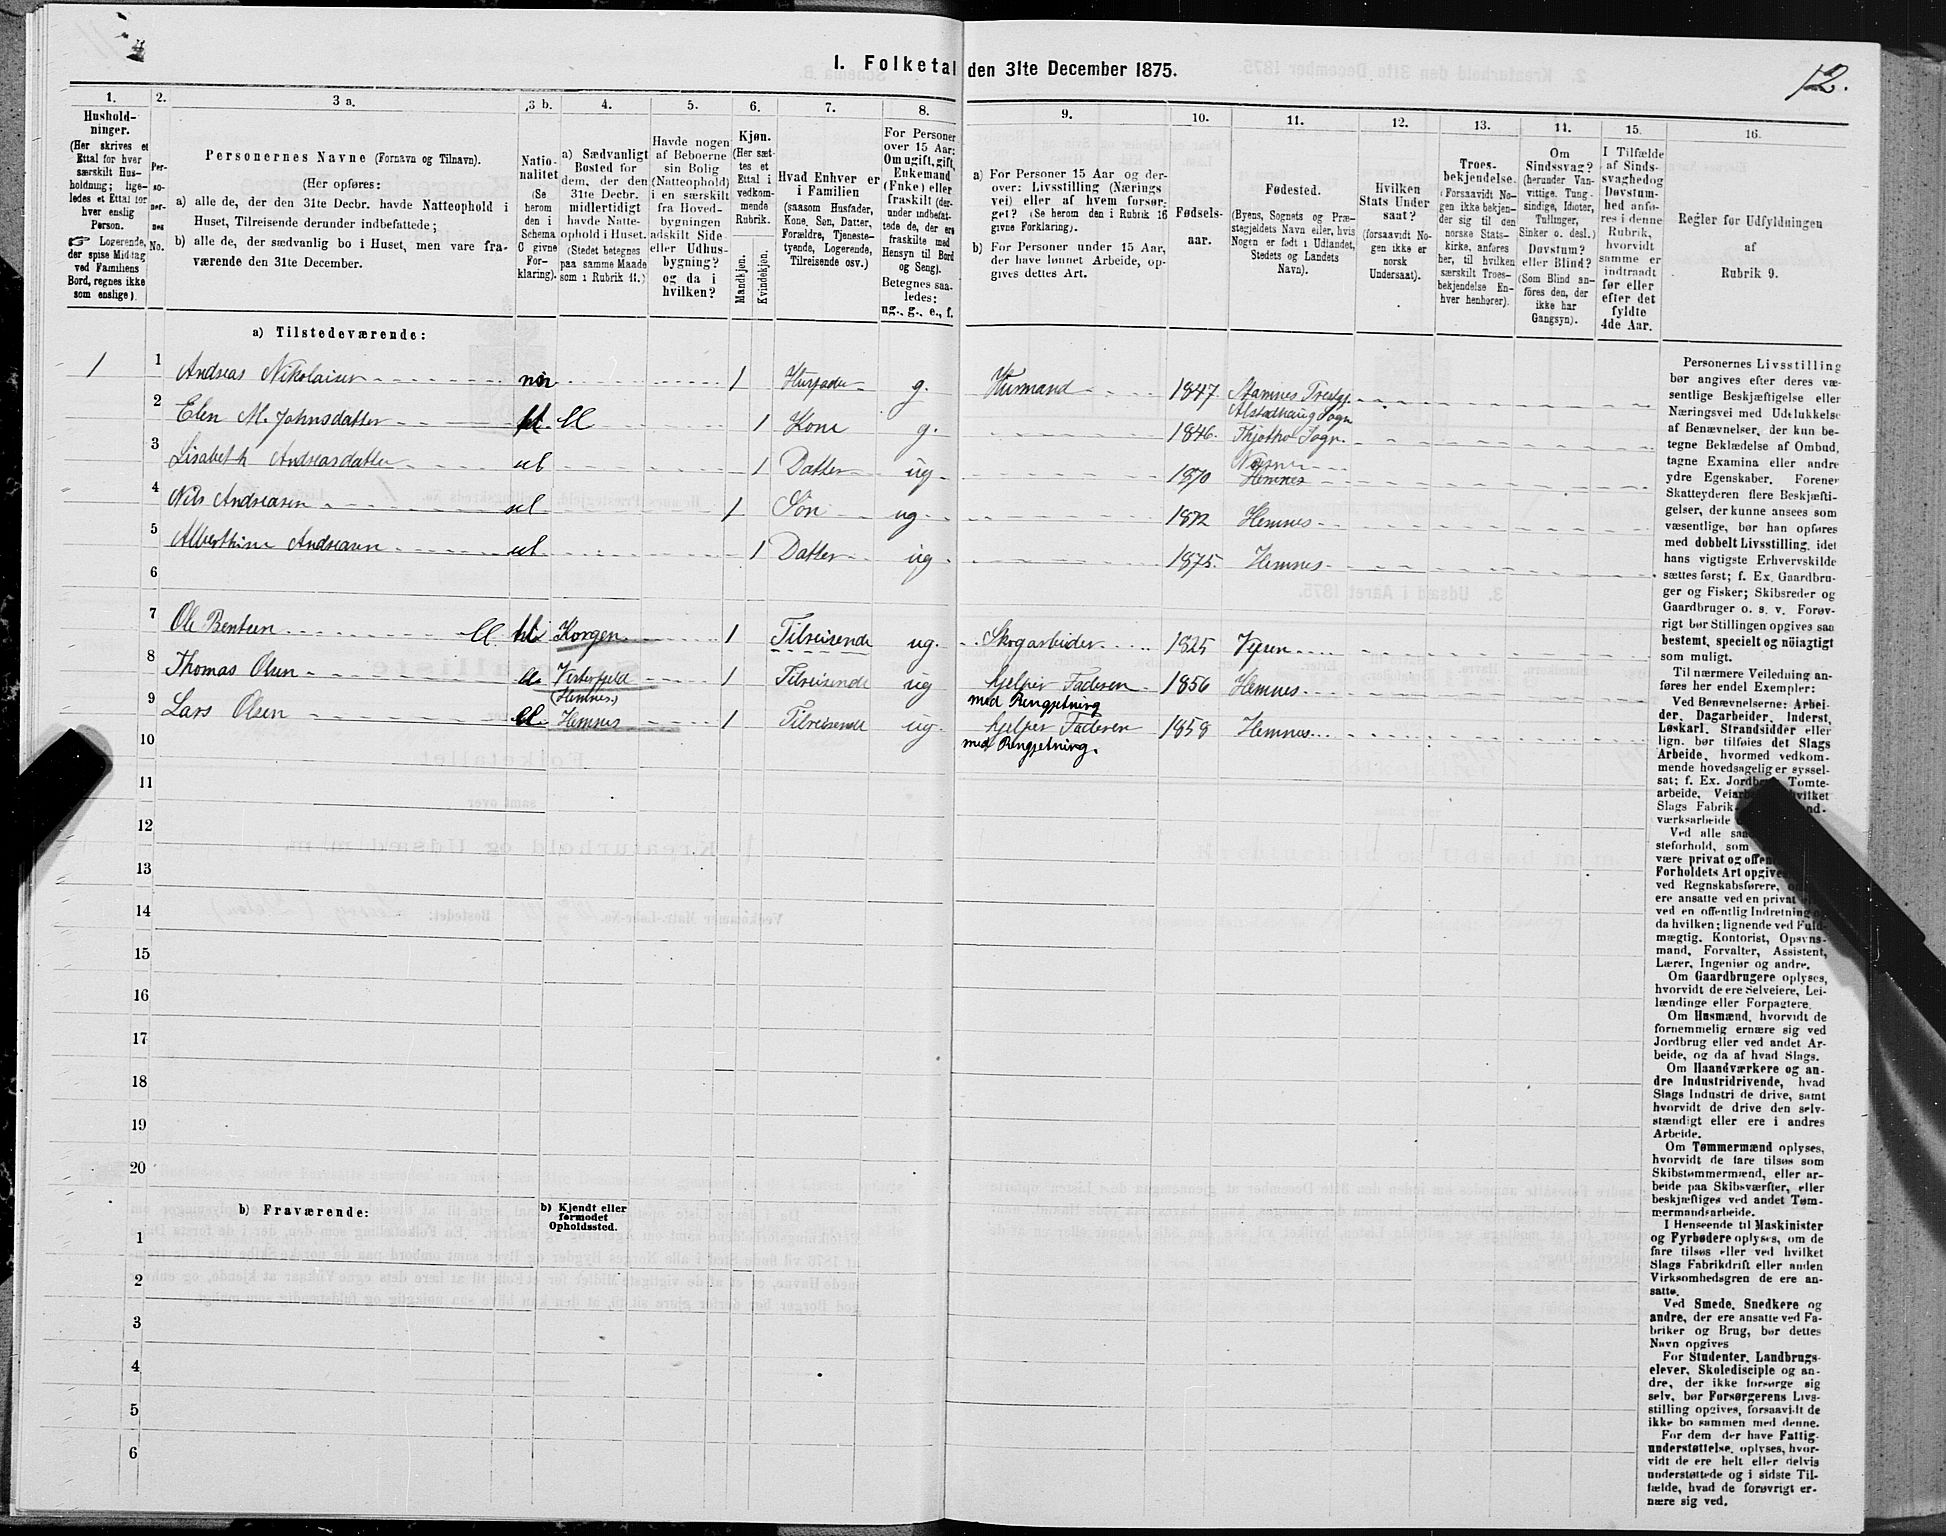 I. Folketal den 31te December 1875.
12.
1.
Hushold-
ninger.
(Her skrives et
Ettal for hver
særskilt Hus-
holdning; lige-
ledes et Ettal for
hver enslig
Person.
☞ Logerende,
der spise Middag
ved Familiens
Bord, regnes ikke
som enslige).
2.
Per-
so-
ner-
nes
No.
3 a.
Personernes Navne (Fornavn og Tilnavn).
(Her opføres:
a) alle de, der den 31te Decbr. havde Natteophold i
Huset, Tilreisende derunder indbefattede;
b) alle de, der sædvanlig bo i Huset, men vare fra-
værende den 31te December.
3 b.
Natio-
nalitet
(Se
herom
den i
Schema
C givne
For-
klaring).
4.
a) Sædvanligt
Bosted for
dem, der den
31te Decbr.
midlertidigt
havde Natte-
ophold i Huset.
(Stedet betegnes
paa samme Maade
som i Rubrik 11.)
5.
Havde nogen
af Beboerne
sin Bolig
(Natteophold)
i en særskilt
fra Hoved-
bygningen
adskilt Side-
eller Udhus-
bygning?
og da i
hvilken?
6.
Kjøn.
(Her sæt-
tes et
Ettal i
vedkom-
mende
Rubrik.
Mandkjøn.
Kvindekjøn.
7.
Hvad Enhver er
i Familien
(saasom Husfader,
Kone, Søn, Datter,
Forældre, Tjeneste-
tyende, Logerende,
Tilreisende osv.)
8.
For Personer
over 15 Aar:
Om ugift, gift,
Enkemand
(Enke) eller
fraskilt (der-
under indbefat-
tede de, der ere
fraskilte med
Hensyn til Bord
og Seng).
Betegnes saa-
ledes:
ug., g., e., f.
9.
a) For Personer 15 Aar og der-
over: Livsstilling (Nærings
vei) eller af hvem forsør-
get? (Se herom den i Rubrik 16
givne Forklaring).
b) For Personer under 15 Aar,
der have lønnet Arbeide, op-
gives dettes Art.
10.
Fødsels-
aar.
11.
Fødested.
(Byens, Sognets og Præ-
stegjeldets Navn eller, hvis
Nogen er født i Udlandet,
Stedets og Landets
Navn).
12.
Hvilken
Stats Under
saat?
(forsaavidt No-
gen ikke er
norsk
Undersaat).
13.
Troes-
bekjendelse.
(Forsaavidt No-
gen ikke bekjen-
der sig til den
norske Stats-
kirke, anføres
her, til hvilken
særskilt Troes-
bekjendelse En-
hver henhører).
14.
Om
Sindssvag?
(herunder Van-
vittige, Tung-
sindige, Idioter,
Tullinger,
Sinker o. desl.)
Døvstum?
eller Blind?
(Som Blind an-
føres den, der
ikke har
Gangsyn).
15.
I Tilfælde
af Sinds-
svaghed og
Døvstum-
hed anfø-
res i denne
Rubrik,
hvorvidt
samme er
indtraadt
før eller
efter det
fyldte
4de Aar.
16.
Regler for Udfyldningen
af
Rubrik 9.
a) Tilstedeværende:
1 1 Andreas Nikolaisen 1 Husfader g. Husmand 1847 Stamnes Prestgj.
Alstadhaug Sogn
2 Elen M. Johnsdatter 1 Kone g. 1846. Thjotta Sogn.
3 Lisabeth Andreasdatter 1 Datter ug 1870 Hemnes
4 Nils Andreasen 1 Søn ug 1872 Hemnes
5 Alberthine Andreasen 1 Datter ug. 1875. Hemnes
6
7 Ole Bentsen Korgen 1 Tilreisende ug. Skogarbeider 1825 Vefsen
8 Thomas Olsen 1 Tilreisende ug hjelper Faderen 1856 Hemnes
(Hemnes) med
9 Lars Olsen Hemnes 1 Tilreisende ug. hjelper Faderen 1858 Hemnes
med
10
11
12
13
14
15
16
17
18
19
20
b) Fraværende:
b) Kjendt eller
formodet
Opholdssted.
1
2
3
4
5
6
Personernes Livsstilling
bør angives efter deres væ-
sentlige Beskjæftigelse eller
Næringsvei med Udelukkelse
af Benævnelser, der kun be-
tegne Beklædelse af Ombud,
tagne Examina eller andre
ydre Egenskaber. Forener
Skatteyderen flere Beskjæfti-
gelser, der kunne ansees som
væsentlige, bør han opføres
med dobbelt Livsstilling, idet
hans vigtigste Erhvervskilde
sættes først; f. Ex. Gaardbru-
ger og Fisker; Skibsreder og
Gaardbruger o. s. v. Forøv-
rigt bør Stillingen opgives saa
bestemt, specielt og nøiagtigt
som muligt.
Til nærmere Veiledning an-
føres her endel Exempler:
Ved Benævnelserne: Arbei-
der, Dagarbeider, Inderst,
Løskarl, Strandsidder eller
lign. bør tilføies det Slags
Arbeide, hvormed vedkom-
mende hovedsagelig er syssel-
sat; f. Ex. Tomte-
arbeide, hvilket
Slags
værksarbeide
Ved alle
steforhold, som
være privat og
Forholdets Art
ved Regnskabsførere,
ere ansatte ved en privat
ved en offentlig Indretning
da hvilken; lignende ved Fuld-
mægtig, Kontorist, Opsyns-
mand, Forvalter, Assistent,
Lærer, Ingeniør og andre.
Om Gaardbrugere oplyses,
hvorvidt de ere Selveiere, Lei-
lændinge eller Forpagtere.
Om Husmænd, hvorvidt de
fornemmelig ernære sig ved
Jordbrug eller ved andet Ar-
beide, og da af hvad Slags.
Om Haandværkere og an-
dre Industridrivende, hvad
Slags Industri de drive, samt
hvorvidt de drive den selv-
stændigt eller ere i andres
Arbeide.
Om Tømmermænd oplyses,
hvorvidt de fare tilsøs som
Skibstømmermænd, eller ar-
beide paa Skibsværfter, eller
beskjæftiges ved andet Tøm-
mermandsarbeide.
I Henseende til Maskinister
og Fyrbødere oplyses, om de
fare tilsøs eller ved hvilket
Slags Fabrikdrift eller anden
Virksomhedsgren de ere an-
satte.
Ved Smede, Snedkere og
andre, der ere ansatte ved Fa-
briker og Brug, bør dettes
Navn opgives
For Studenter, Landbrugs-
elever, Skoledisciple og an-
dre, der ikke forsørge sig
selv, bør Forsørgerens Livs-
stilling opgives, forsaavidt de
ikke bo sammen med denne.
For dem, der have Fattig-
understøttelse, oplyses, hvor-
vidt de ere helt eller delvis
understøttede og i sidste Til-
fælde, hvad de forøvrigt er-
nære sig ved.